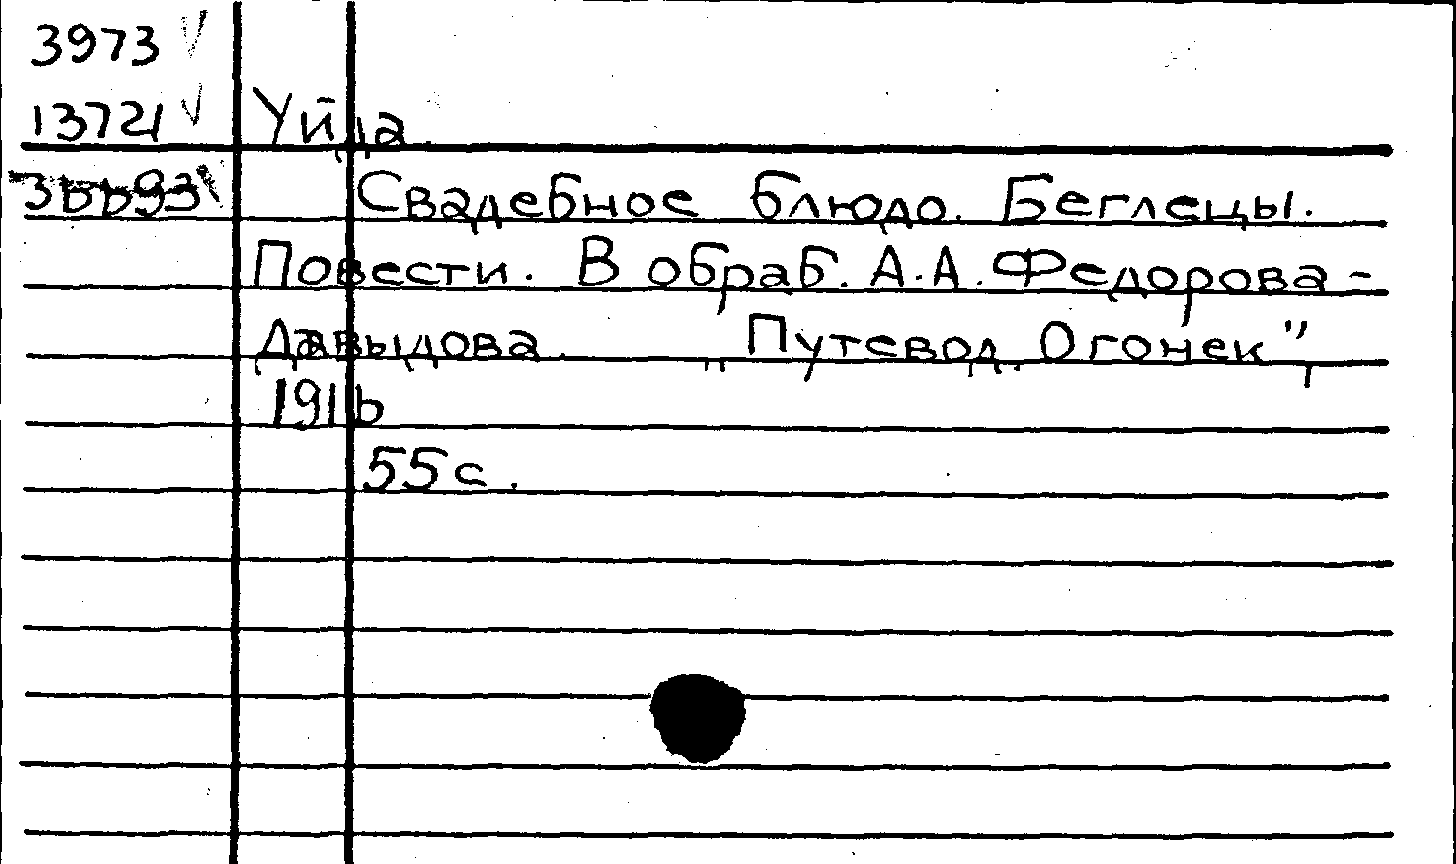 3973 ✓
13721 ✓ Уйда.
36693 Свадебное блюдо. Беглецы.
Повести. В обраб. А.А. Федорова-
Давыдова. „Путевод. Огонек",
1916
55 с.